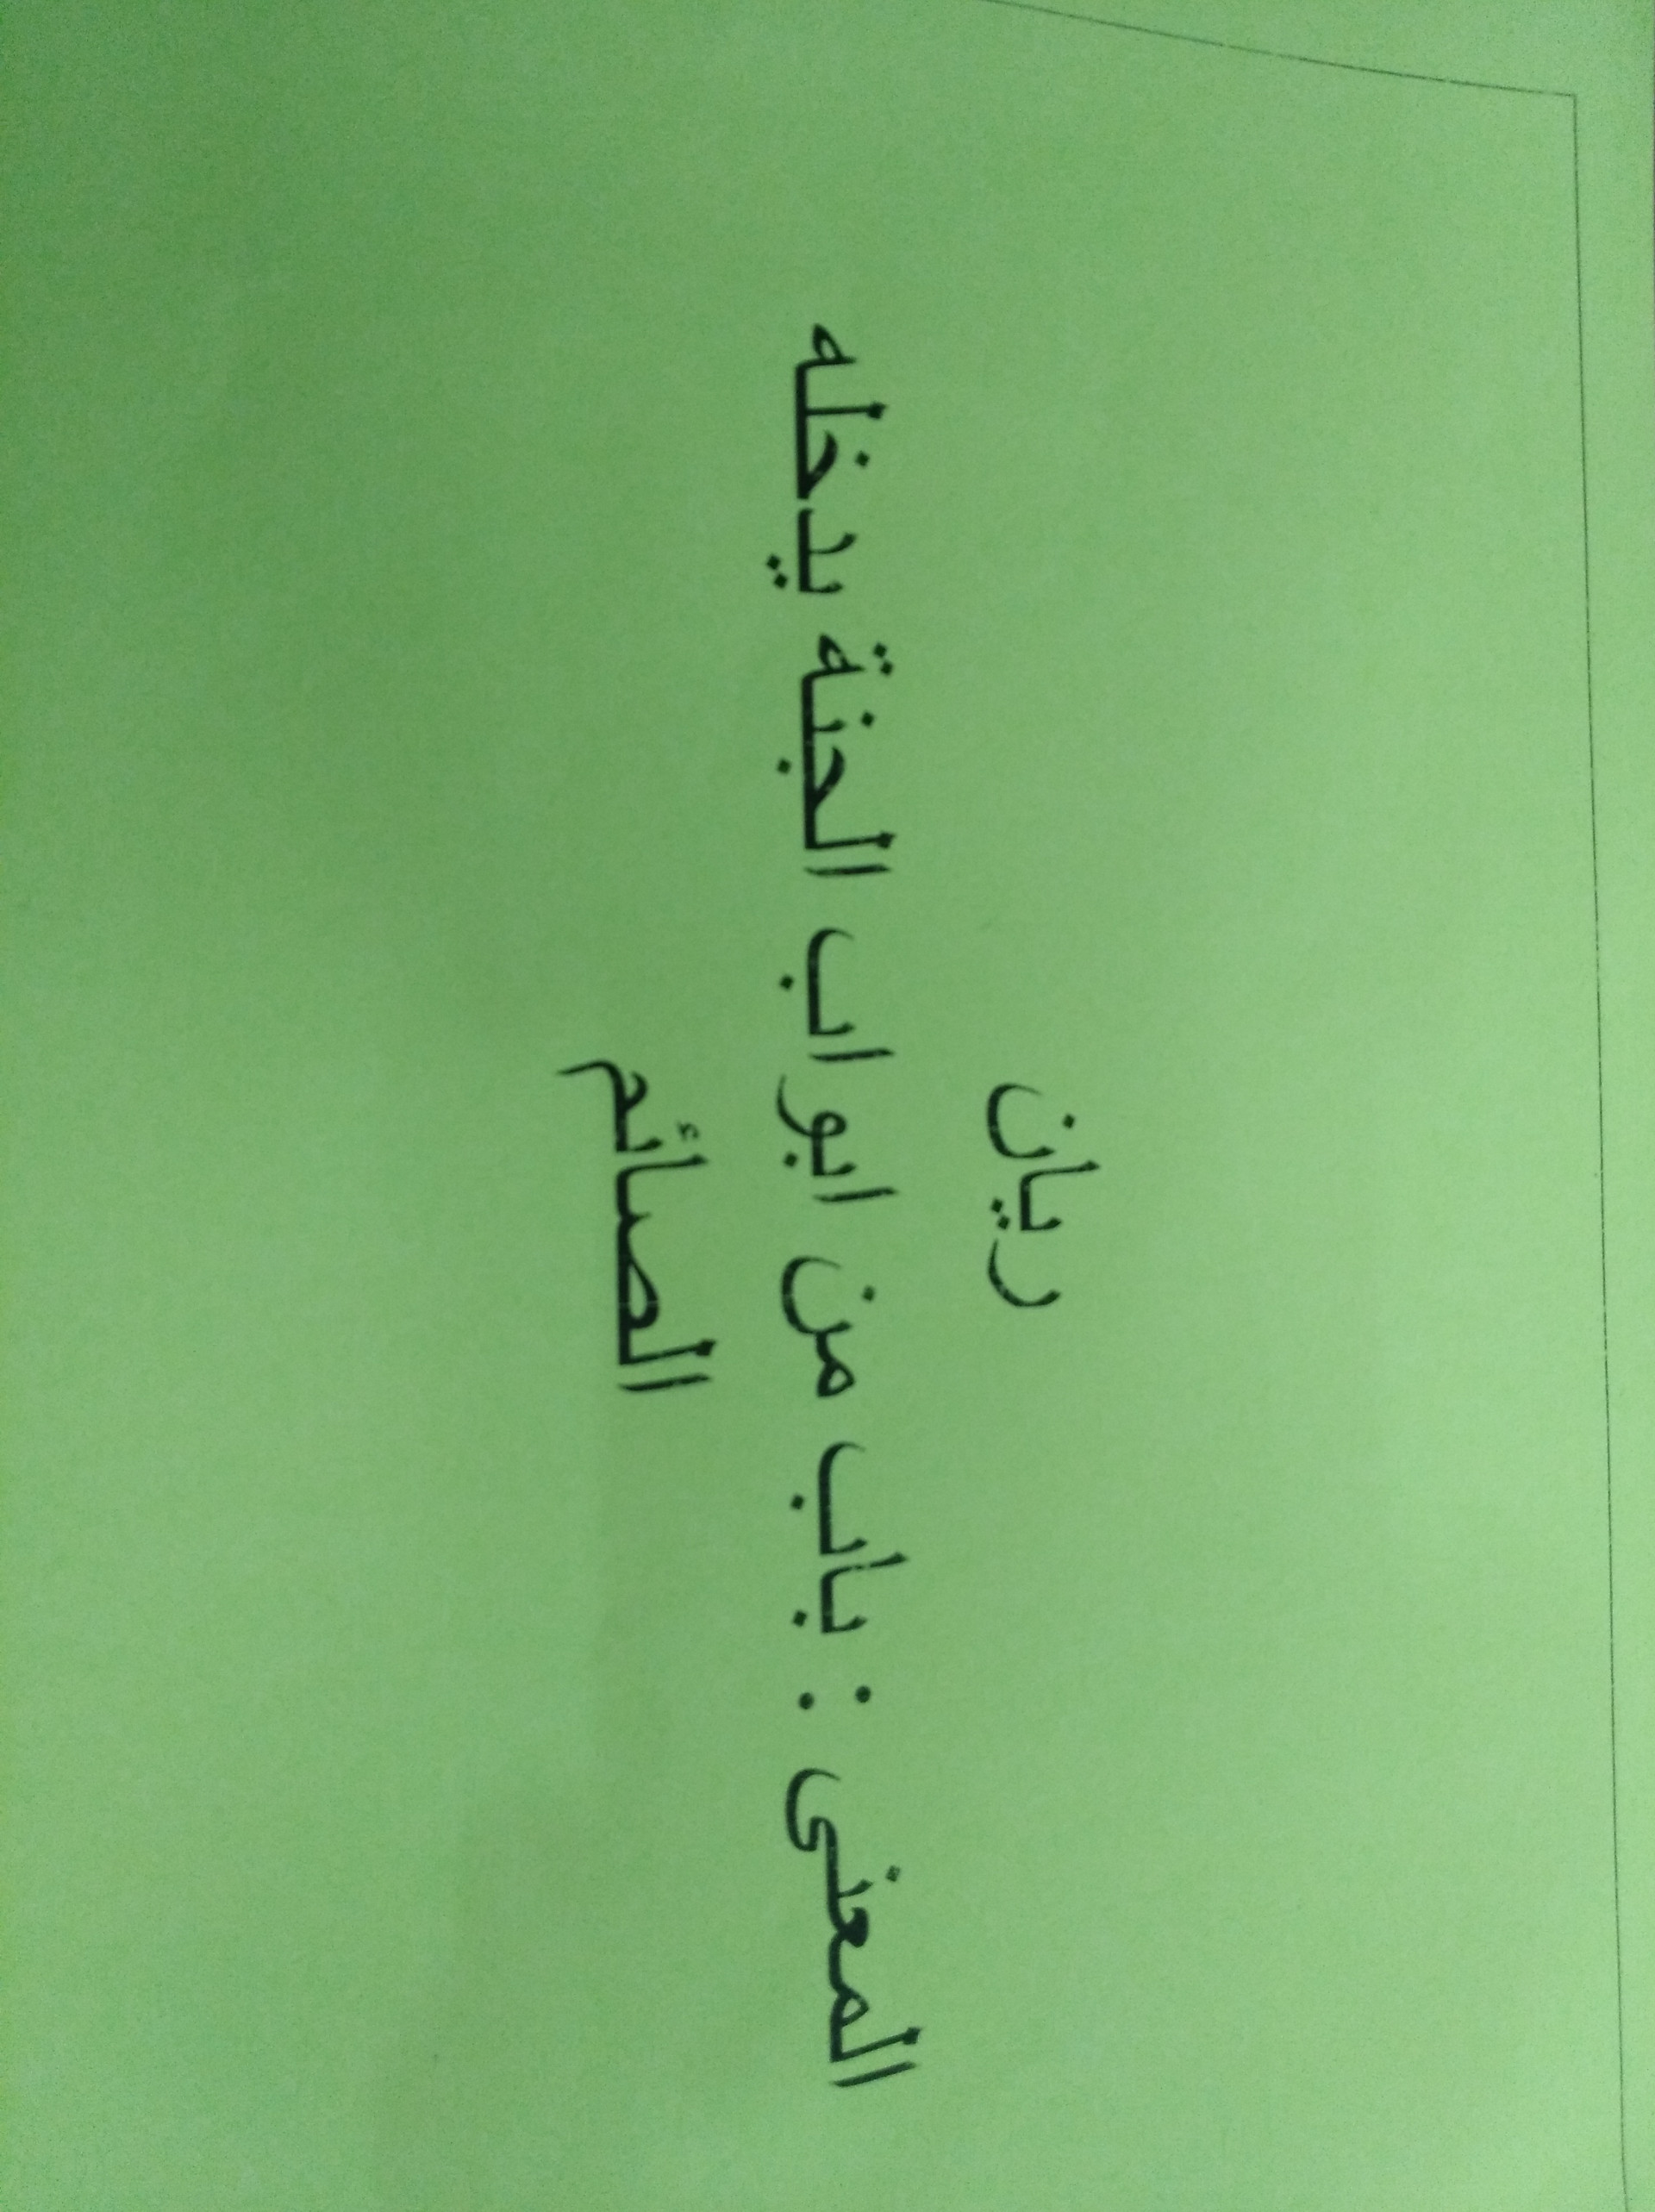 ريان
المعنى : باب من ابواب الجنة يدخله
الصائم